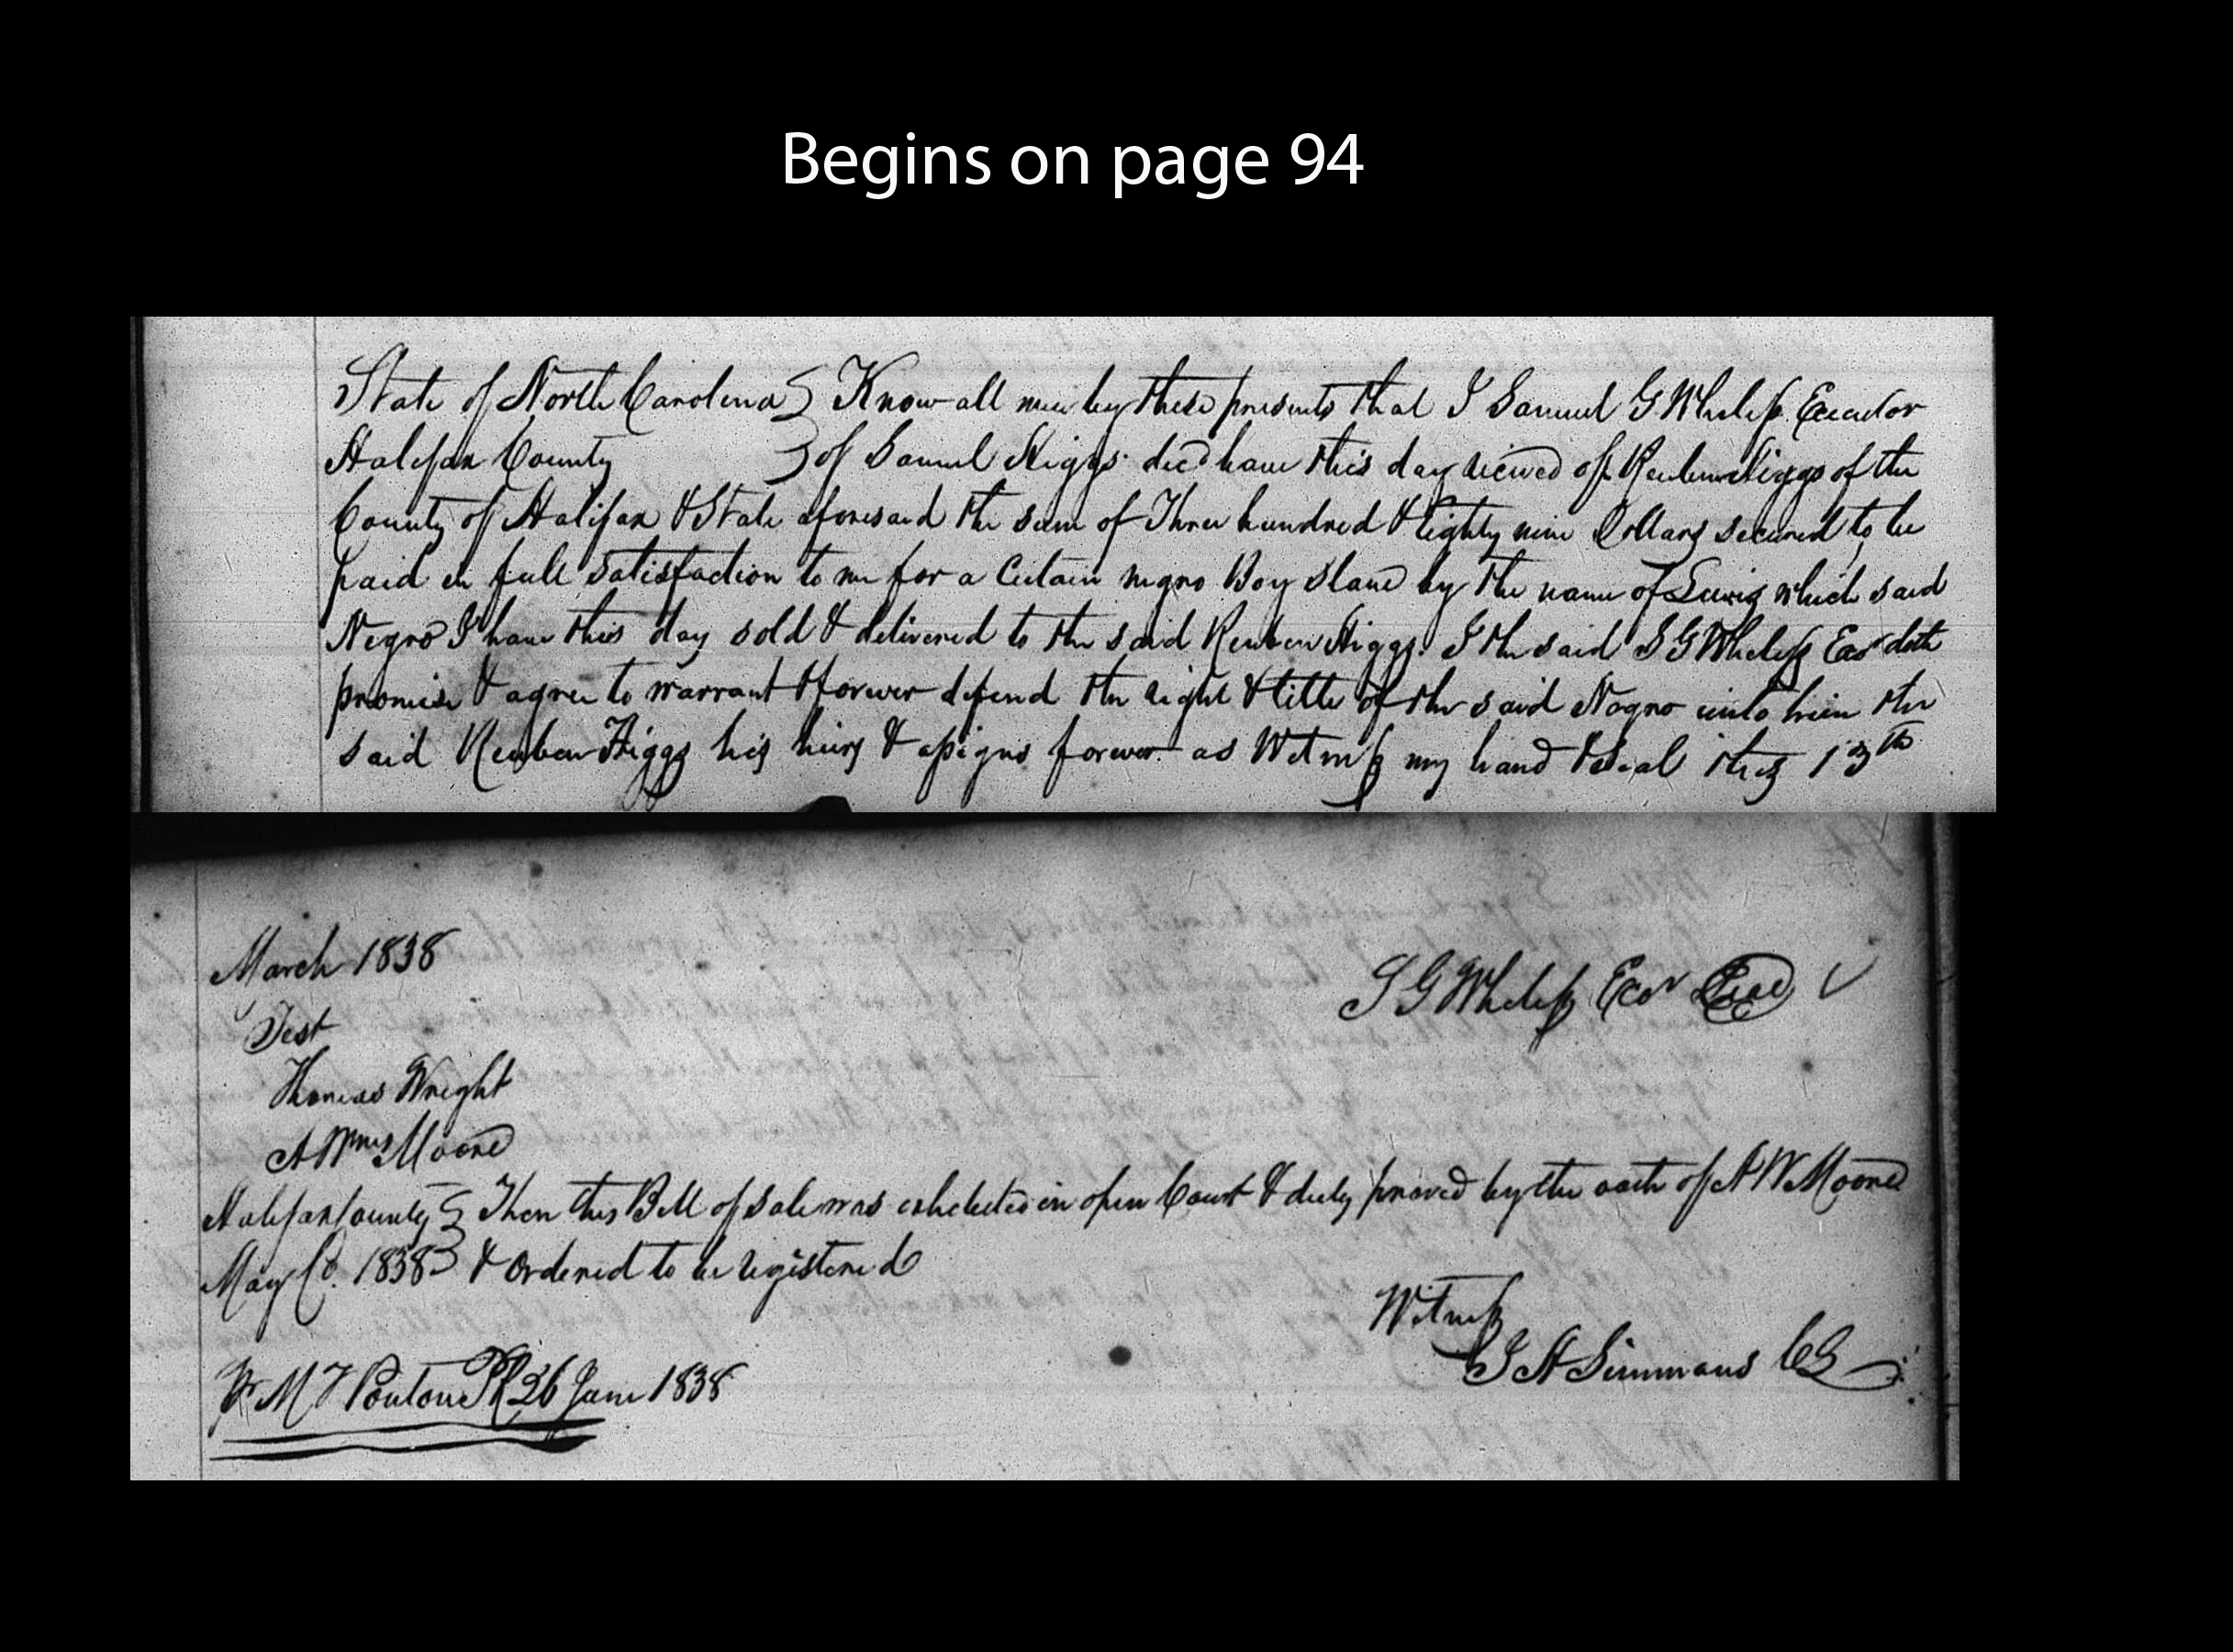 Begins on page 94
State of North Carolina } Know all men by these presents that I Samuel G Wheless Executor
Halifax County } of Samuel Higgs decd have this day recieved of Reuben Higgs of the
County of Halifax & State aforesaid the sum of Three hundred & Eighty nine Dollars secured to be
paid in full satisfaction to me for a Certain negro Boy Slave by the name of Lewis which said
Negro I have this day sold & delivered to the said Reuben Higgs. I the said S G Wheless Exor doth
promise & agree to warrant & forever defend the right & title of the said Negro unto him the
said Reuben Higgs his heirs & assigns forever as Witness my hand & seal this 13th
March 1838
S G Wheless Exor Seal
Test
Thomas Wright
A Wms Moore
Halifax County } Then this Bill of Sale was exhibited in open Court & duly proved by the oath of A W Moore
May Ct. 1838 } & Ordered to be registered
Witness
J H Simmons CC
M T Ponton PR 26 June 1838